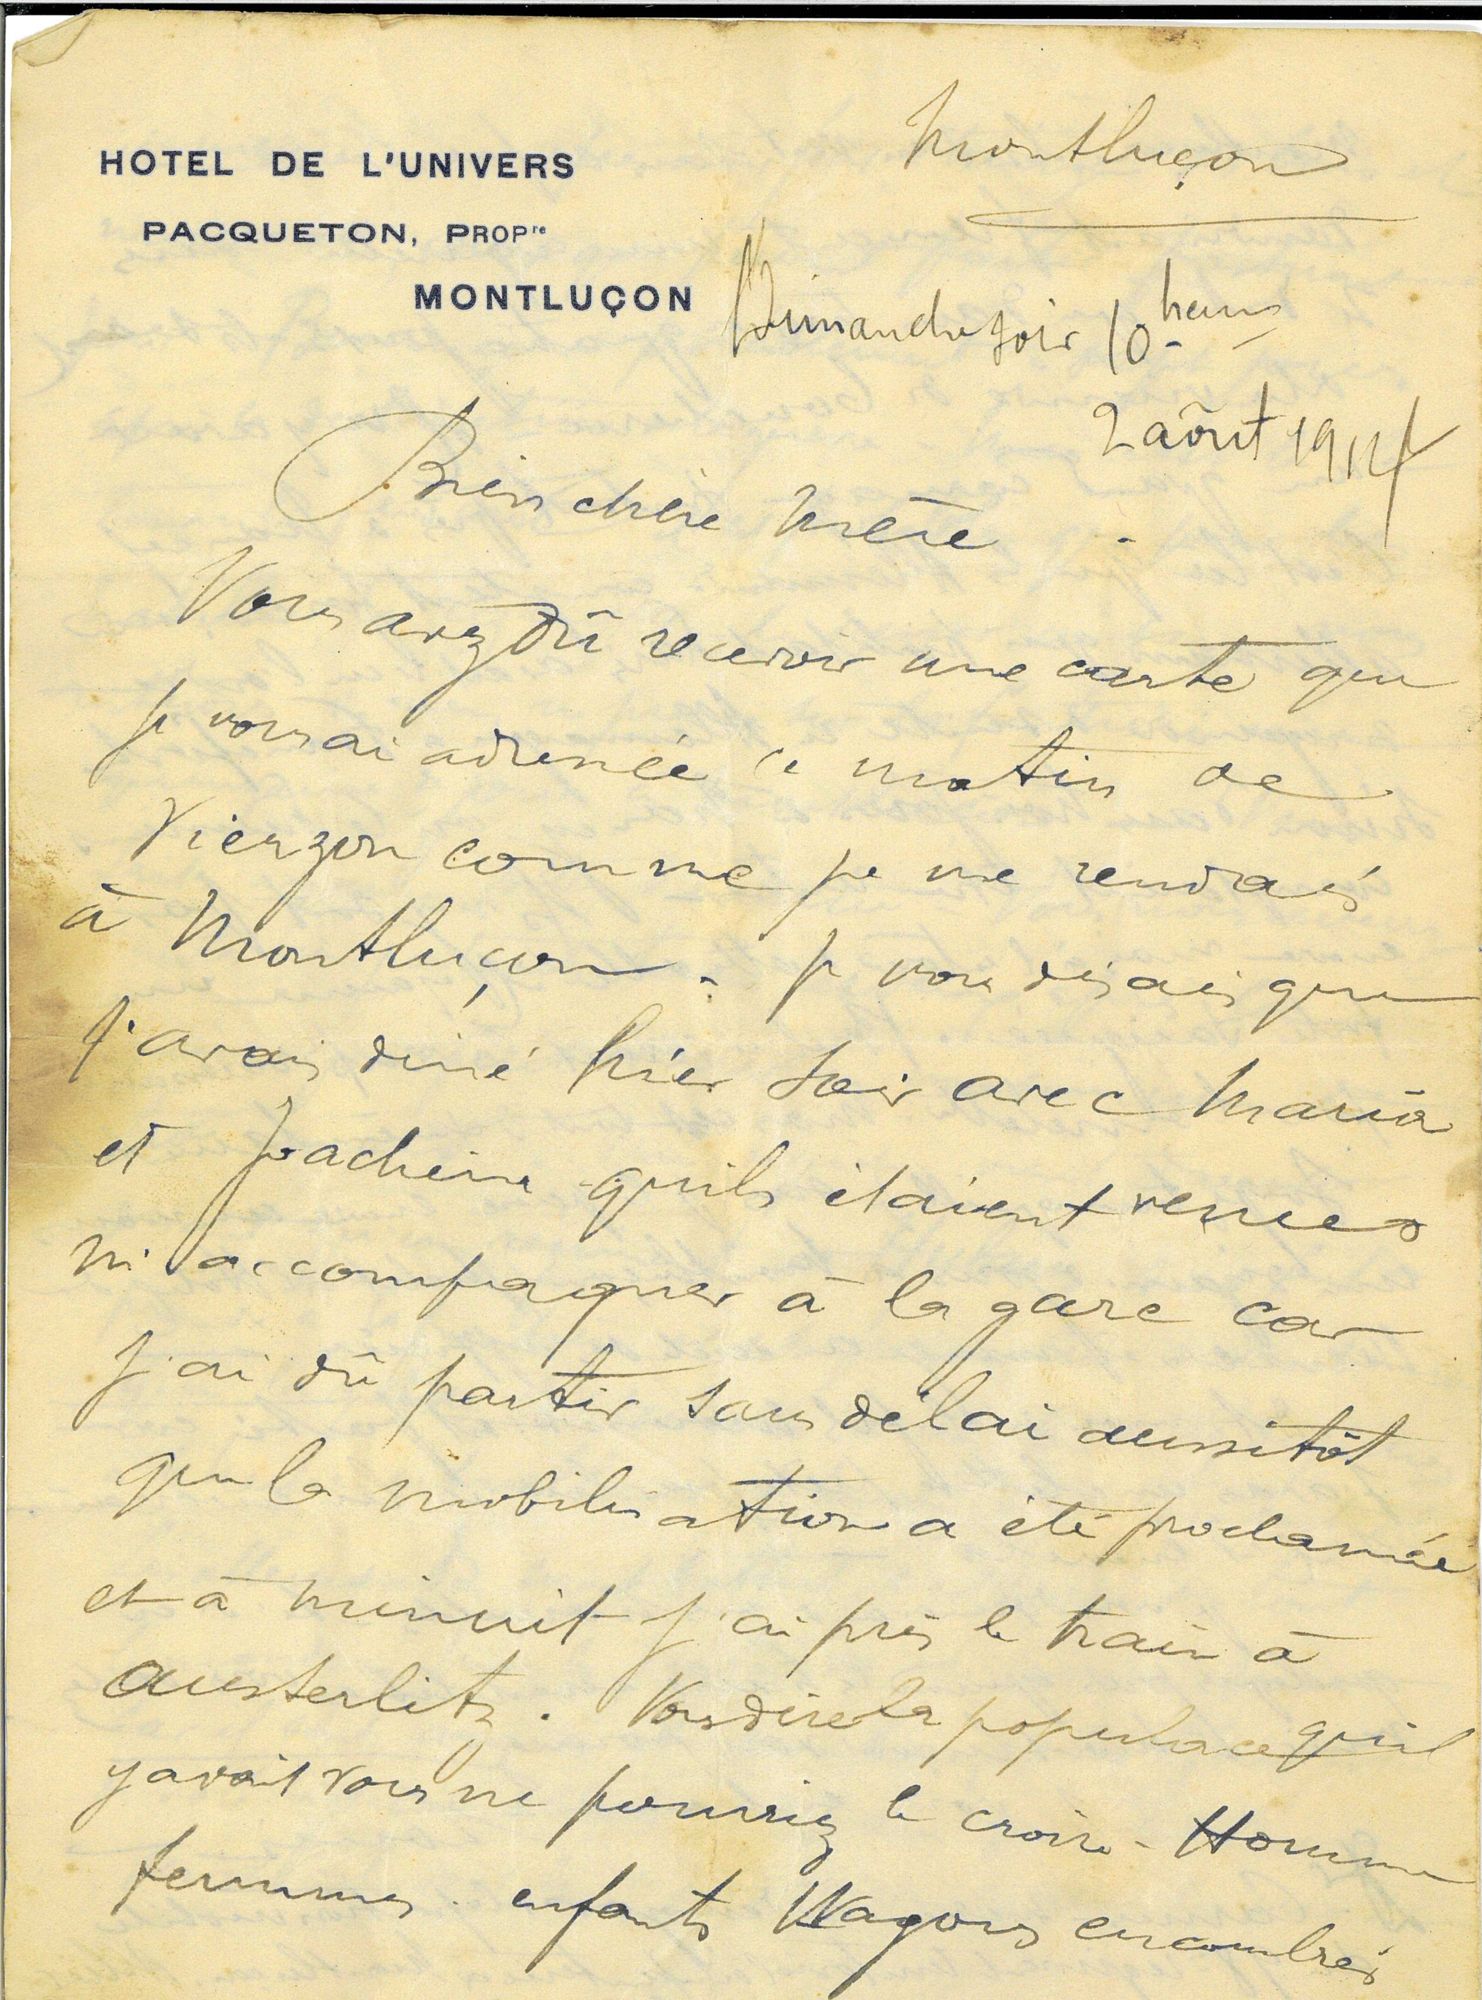 HOTEL DE L'UNIVERS
PACQUETON, PROPre
MONTLUÇON
Montluçon
Dimanche soir 10 heures
2 aôut 1914
Bien chère Mère.
Vous avez dû recevoir une carte que
je vous ai adressée ce matin de
Vierzon comme je me rendais
à Montluçon. Je vous disais que
j'avais diné hier soir avec Maria
et Joachim qu'ils étaient venus
m'accompagner à la gare car
j'ai dû partir sans délai aussitôt
que la mobilisation a été proclamée
et à minuit j'ai pris le train à
Austerlitz. Vous dire la populace qu'il
y avait vous ne pourriez le croire - Hommes
femmes. enfants Wagons encombrés